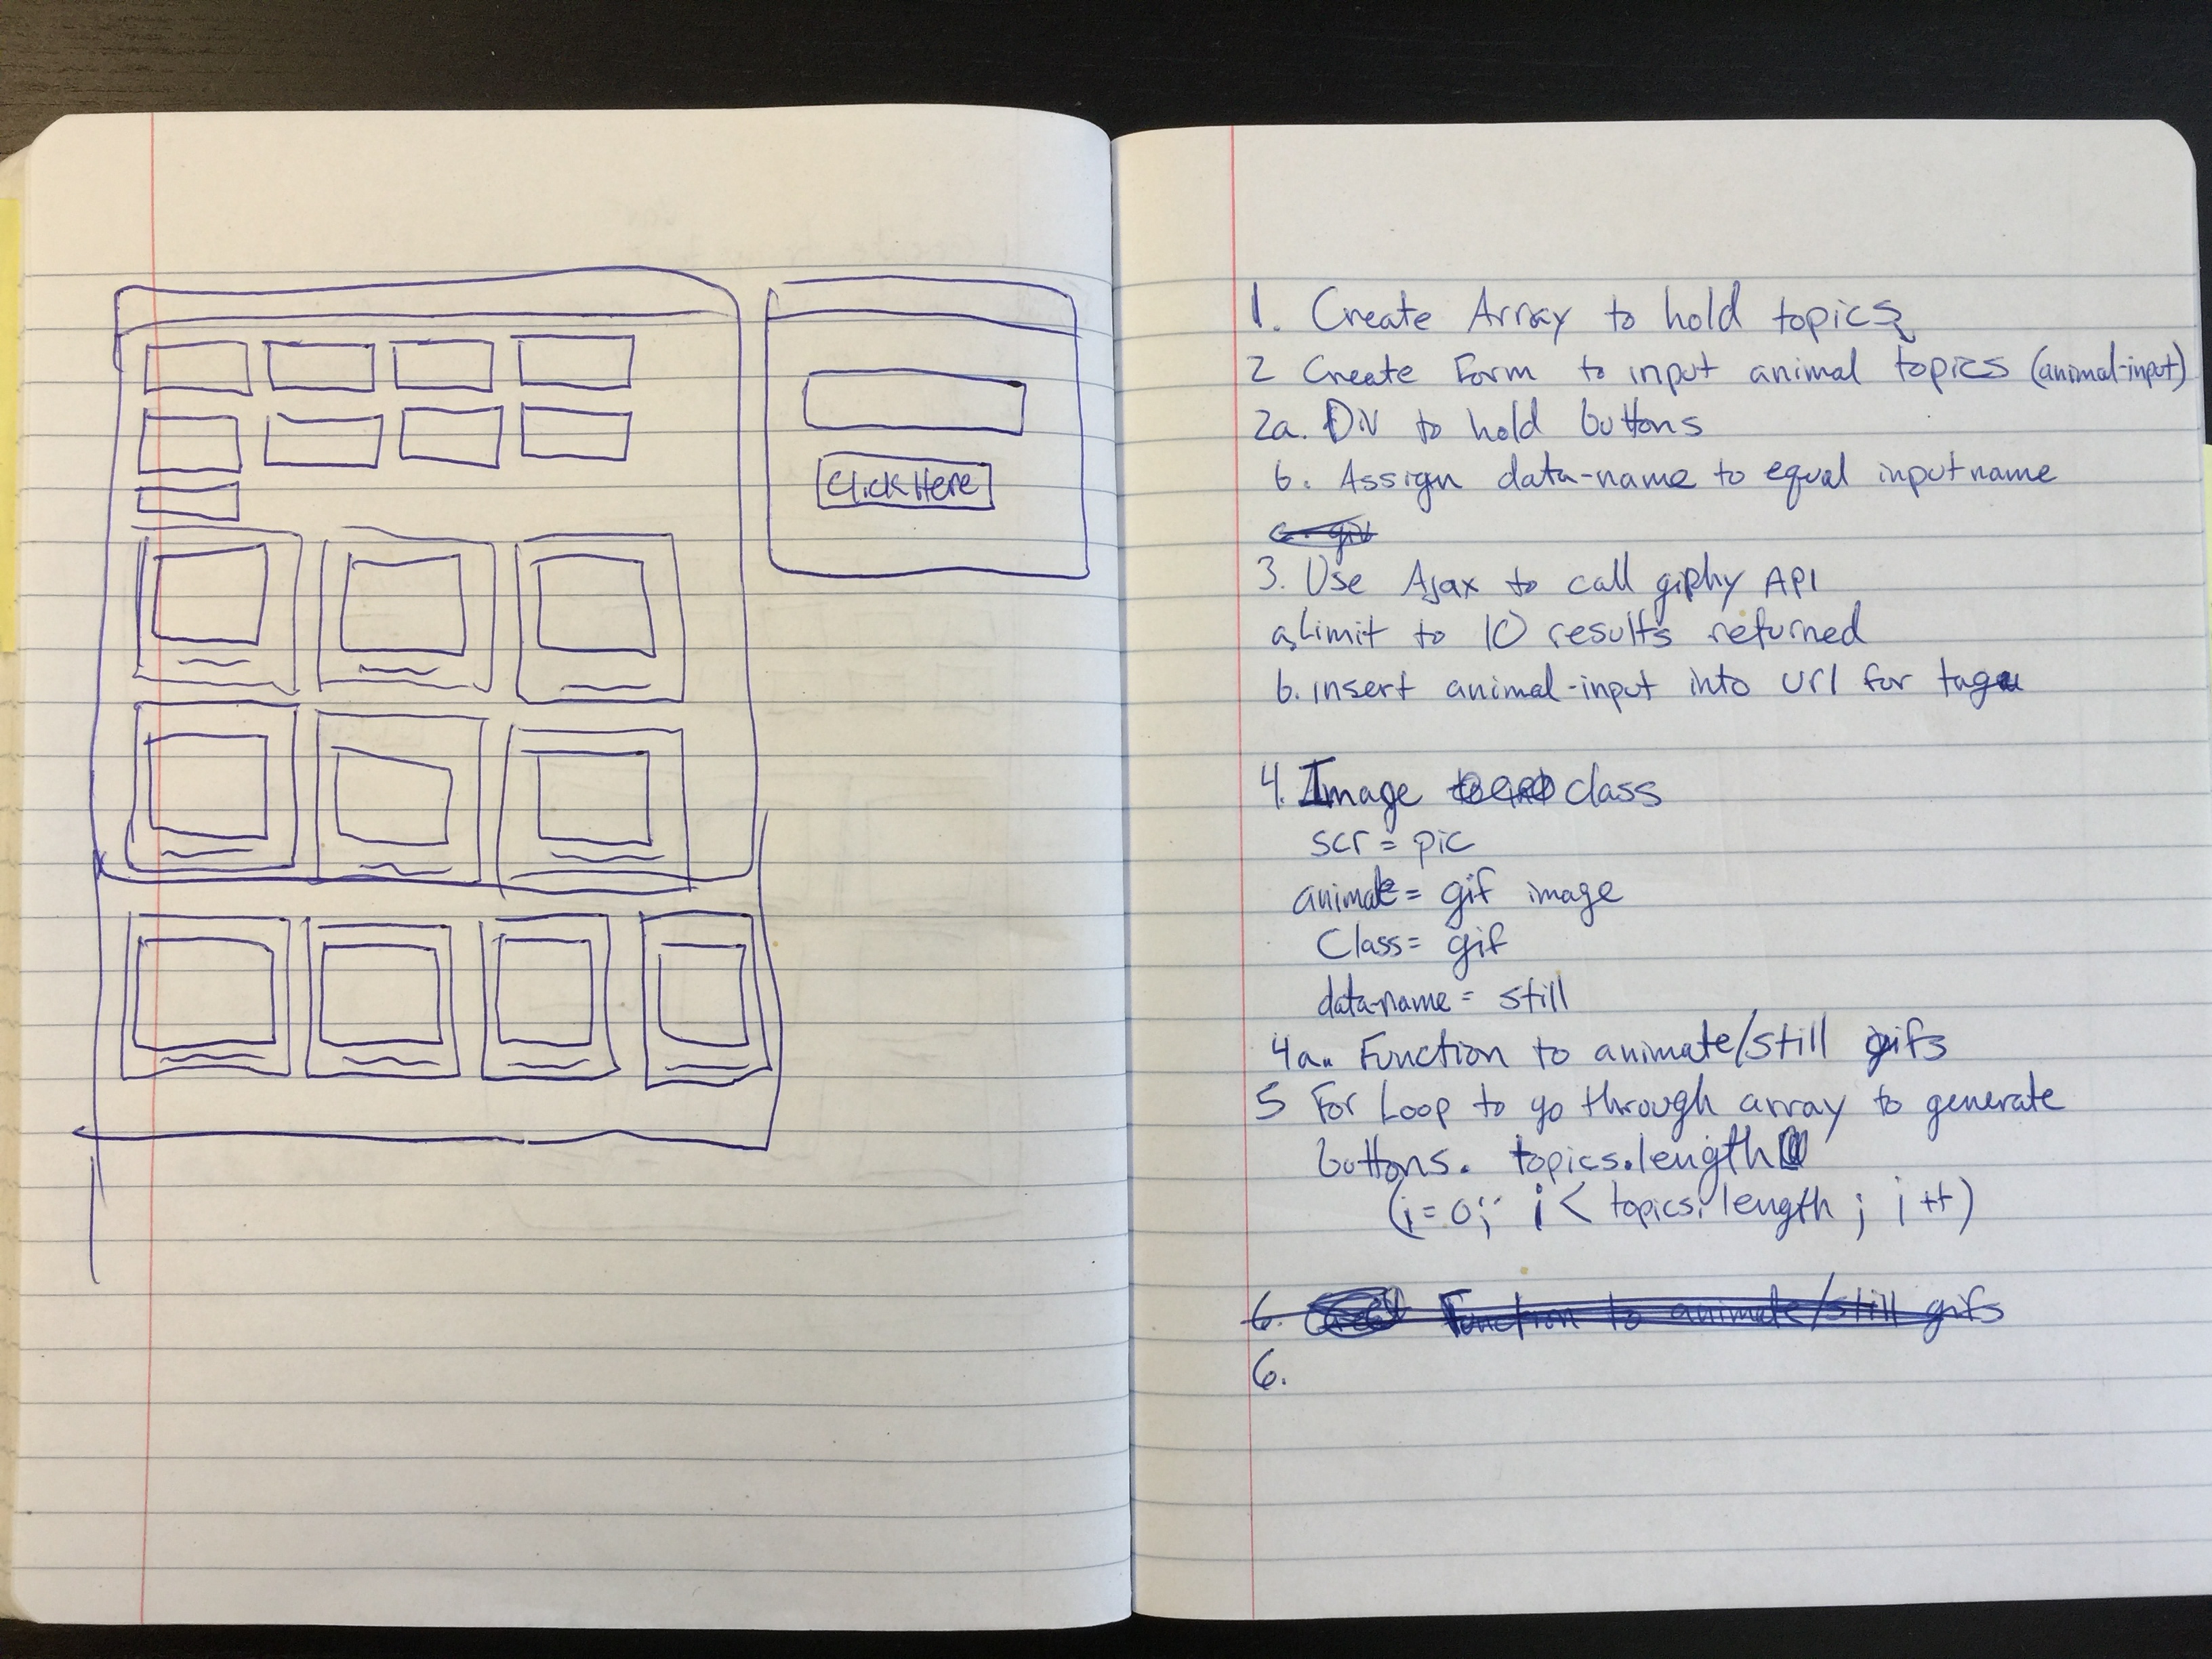 Click Here
1. Create Array to hold topics
2 Create Form to input animal topics (animal-input)
2a. Div to hold buttons
b. Assign data-name to equal input name
3. Use Ajax to call giphy API
a, Limit to 10 results returned
b. insert animal-input into url for tag
4. Image class
scr = pic
animate = gif image
Class = gif
data-name = still
4a.. Function to animate/still gifs
5 For Loop to go through array to generate
buttons. topics.length
(i = 0; i < topics.length ; i ++)
6. Function to animate/still gifs
6.